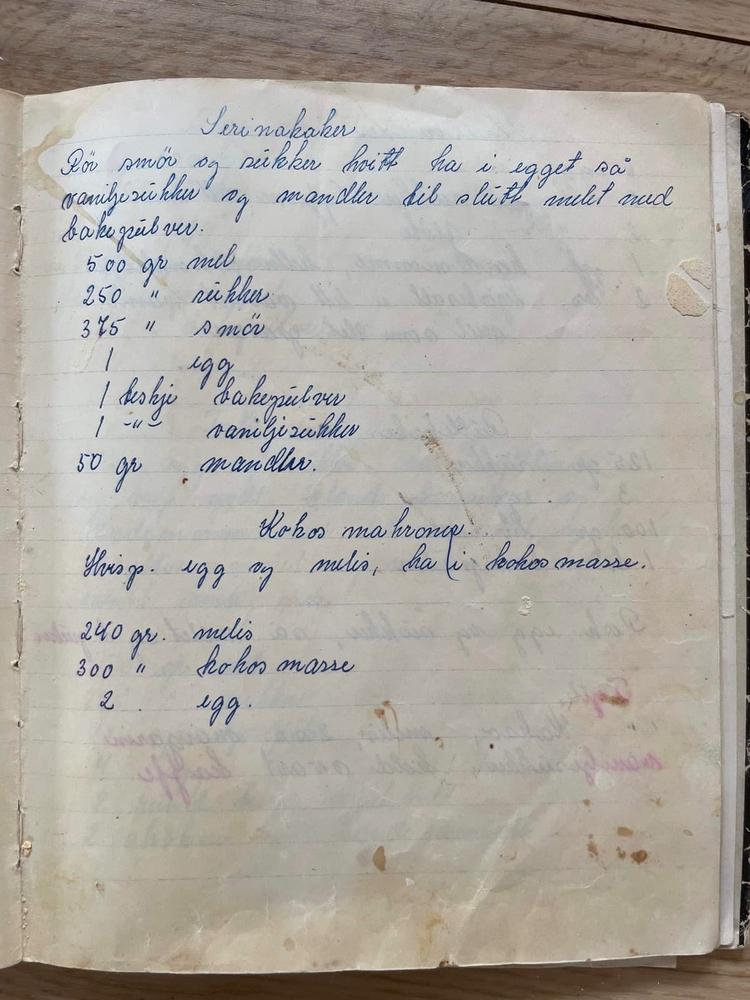 Serinakaker
Rör smör og sukker hvitt ha i egget så
vaniljesukker og mandler til slutt melet med
bakepulver.
500 gr mel
250 " sukker
375 " smör
1 egg
1 teskje bakepulver
1 -"- vaniljesukker
50 gr mandler.
Kokos makroner.
Hvisp. egg og melis, ha i kokosmasse.
240 gr. melis
300 " kokosmasse
2 egg.